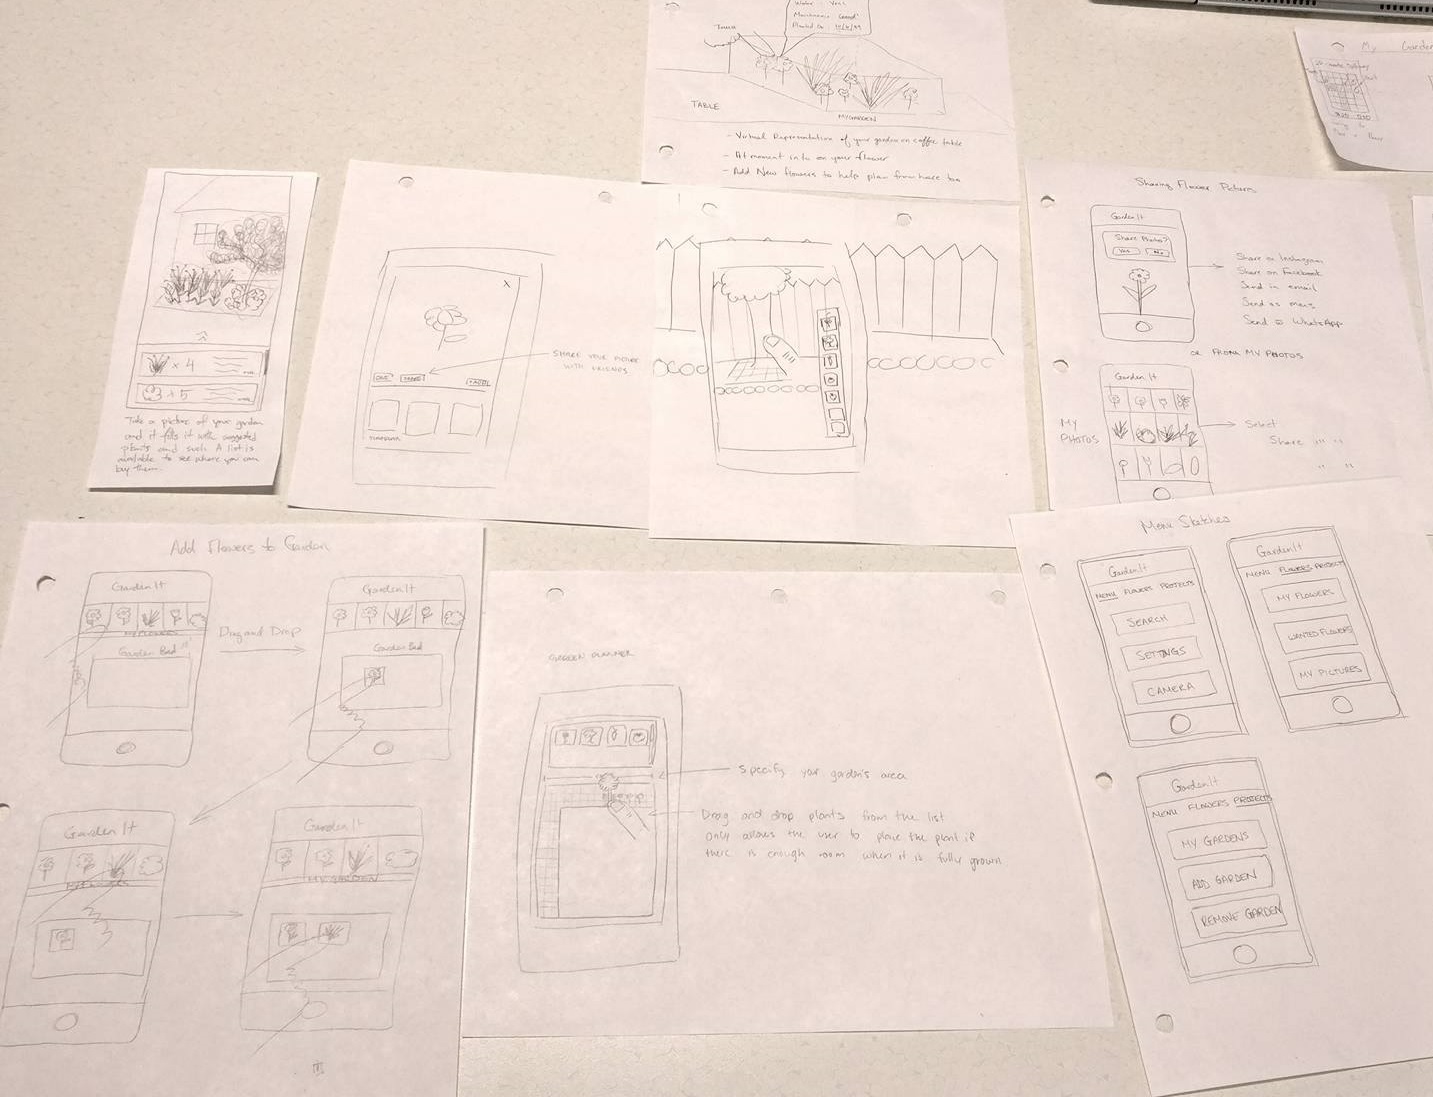 TABLE
MY GARDEN
- Virtual Representation of your garden on coffee table
- At moment info on your flower
- Add New flowers to help plan from home too
My Garden
x 4
x 5
Take a picture of your garden
and it fills it with suggested
plants and such. A list is
available to see where you can
buy them.
X
SHARE YOUR
WITH FRIENDS
Sharing Flower Pictures
Garden It
Share Photo?
Yes No
Share on Instagram
Share on Facebook
Send in email
Send as
Send WhatsApp
OR FROM MY PHOTOS
Garden It
MY
PHOTOS
Select
Share " "
" "
Add Flowers to Garden
Garden It
Garden Bed
Drag and Drop
Garden It
Garden Bed
Garden It
Garden It
MY GARDEN
GARDEN PLANNER
Specify your garden's area
Drag and drop plants from the list
only allows the user to place the plant if
there is enough room when it is fully grown
Menu Sketches
Garden It
MENU FLOWERS PROJECTS
SEARCH
SETTINGS
CAMERA
Garden It
MENU FLOWERS PROJECTS
MY FLOWERS
WANTED FLOWERS
MY PICTURES
Garden It
MENU FLOWERS PROJECTS
MY GARDENS
ADD GARDEN
REMOVE GARDEN